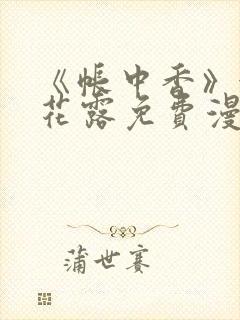 《帐中香》
花露免费漫
蒲世赛